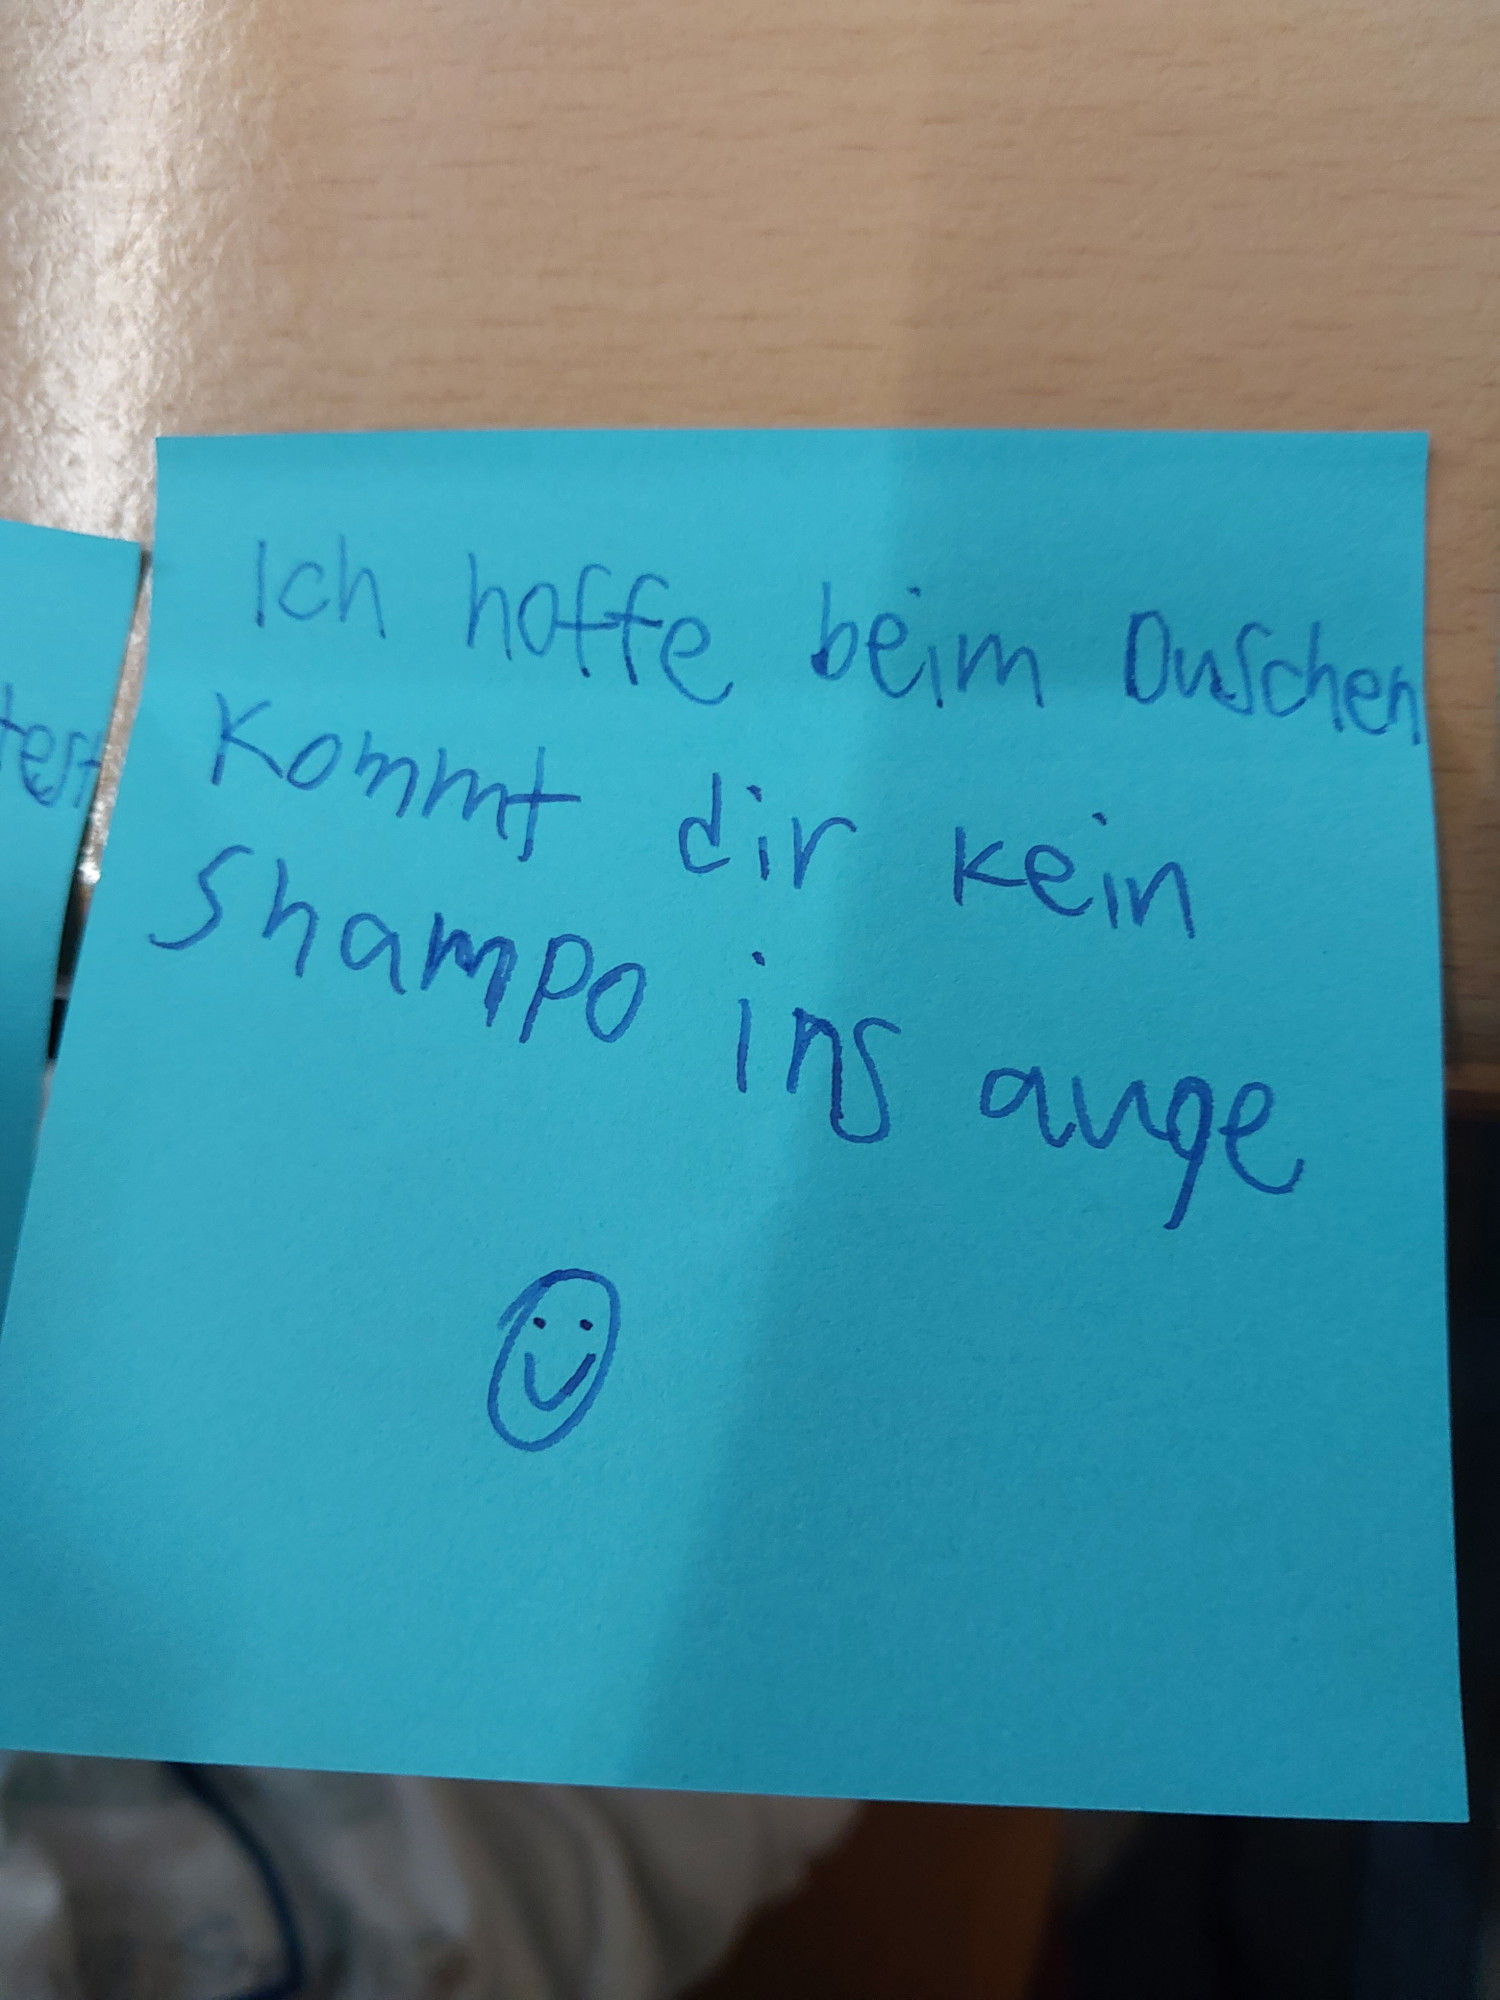 Ich hoffe beim Duschen
Kommt dir kein
Shampo ins auge